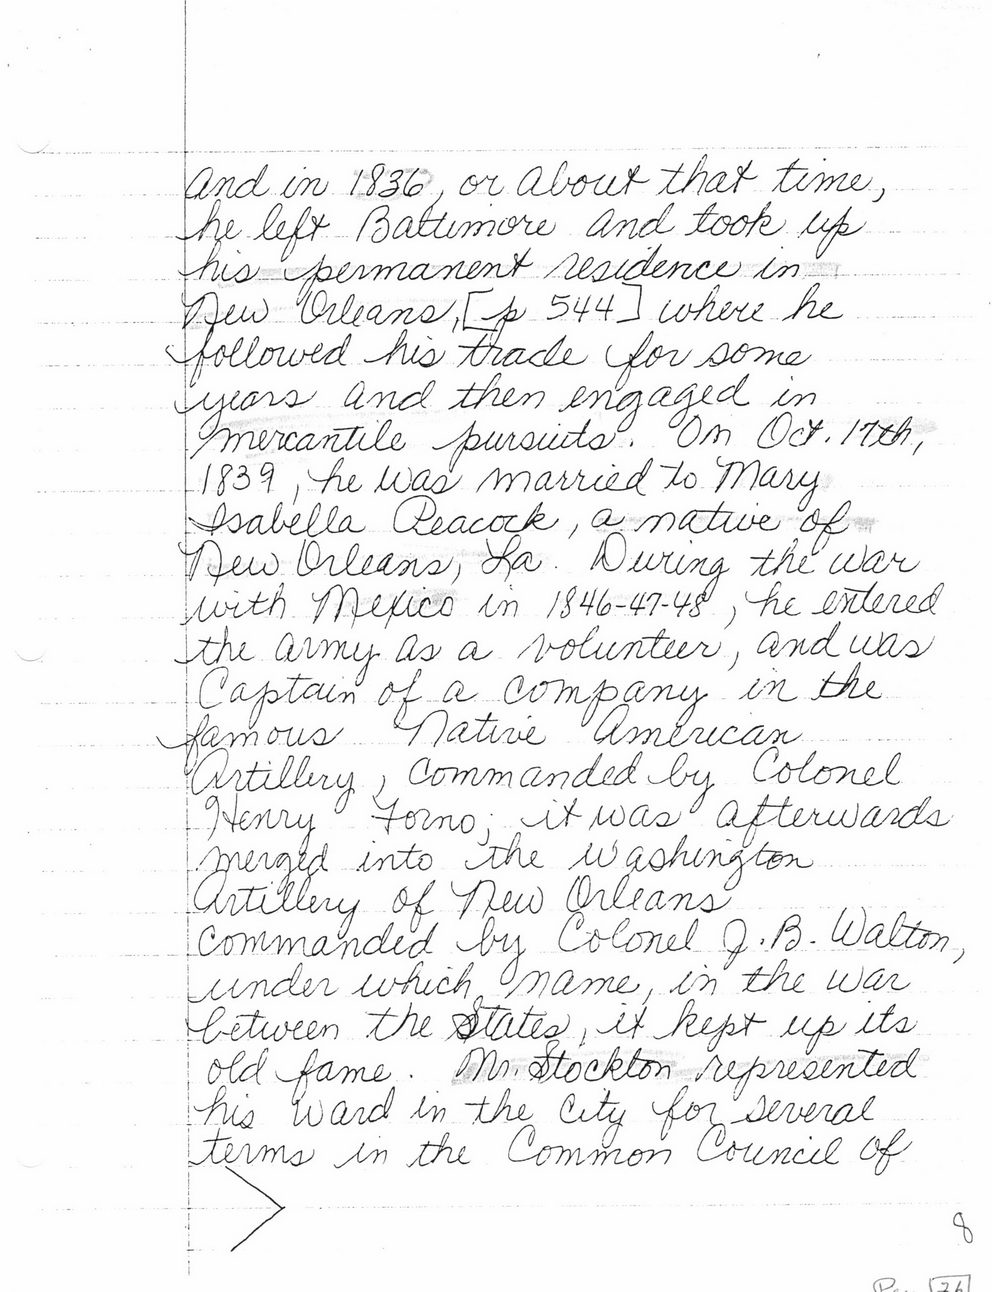 And in 1836, or about that time,
he left Baltimore and took up
his permanent residence in
New Orleans, [p 544] where he
followed his trade for some
years and then engaged in
mercantile pursuits. On Oct. 17th,
1839, he was married to Mary
Isabella Peacock, a native of
New Orleans, La. During the war
with Mexico in 1846-47-48, he entered
the army as a volunteer, and was
Captain of a company in the
famous Native American
Artillery, commanded by Colonel
Henry Forno; it was afterwards
merged into the Washington
Artillery of New Orleans
commanded by Colonel J.B. Walton,
under which name, in the war
between the States, it kept up its
old fame. Mr. Stockton represented
his ward in the city for several
terms in the Common Council of
8